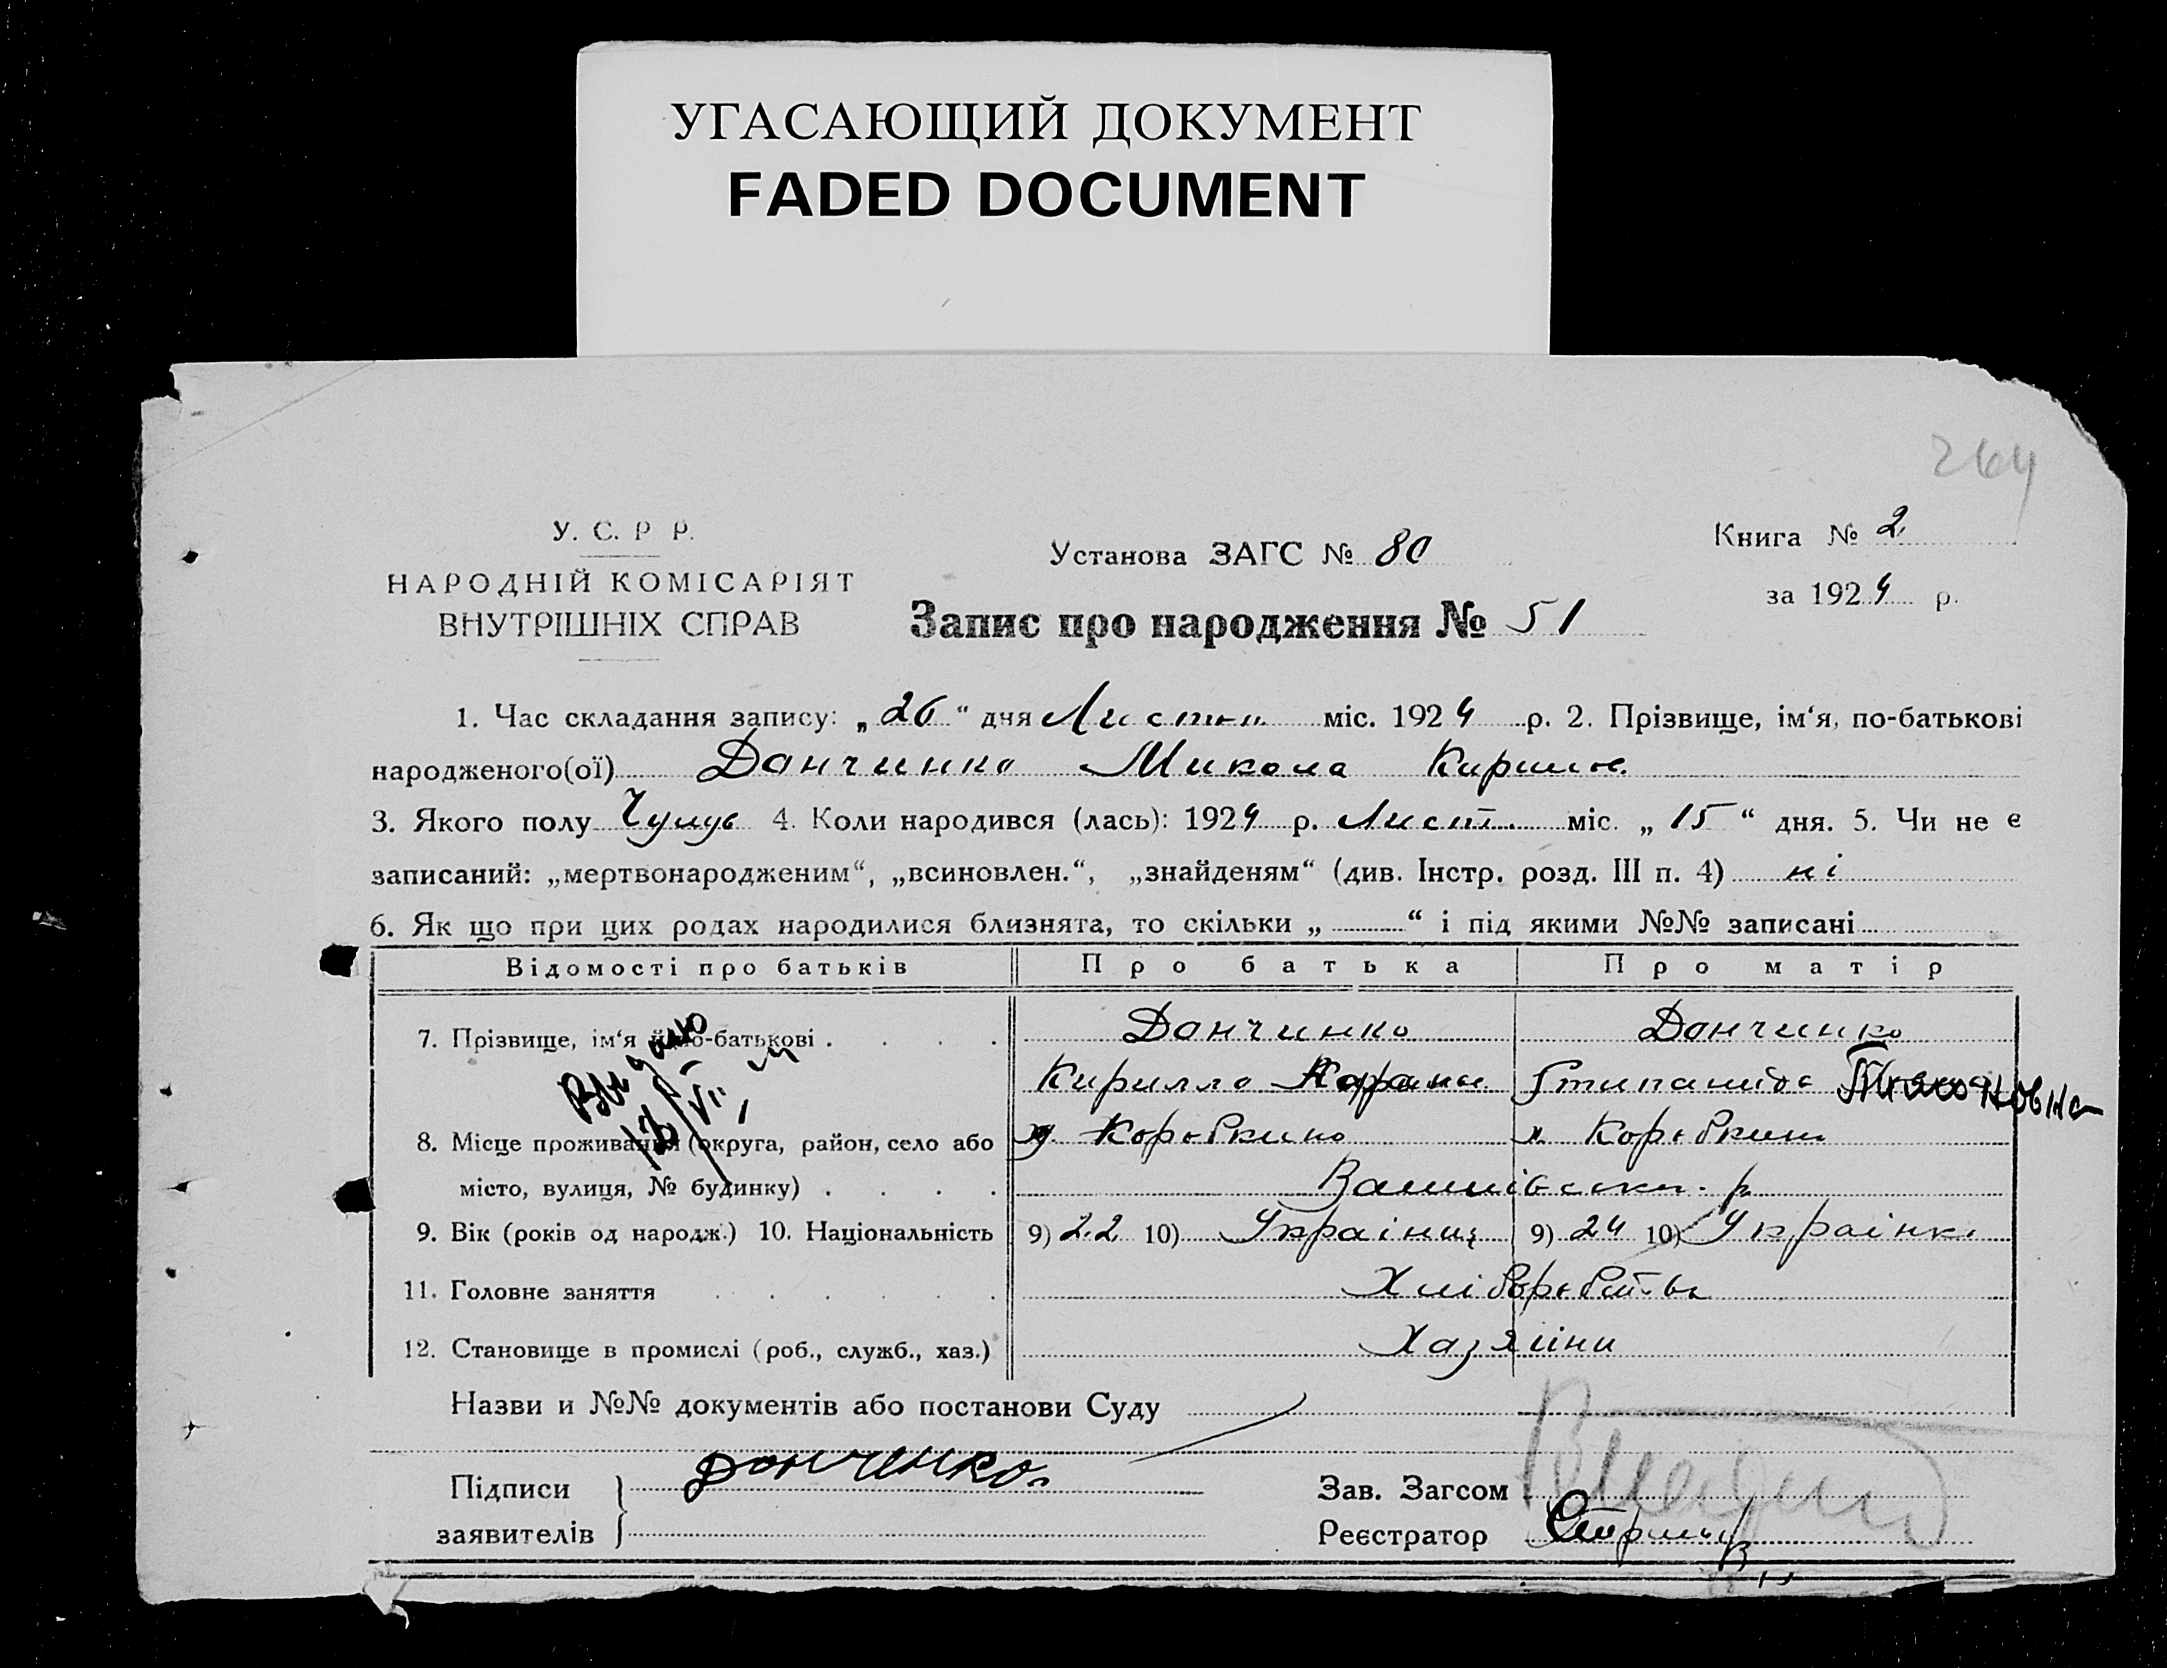 УГАСАЮЩИЙ ДОКУМЕНТ
FADED DOCUMENT
264
У. С. Р Р.
НАРОДНІЙ КОМІСАРІЯТ
ВНУТРІШНІХ СПРАВ
Установа ЗАГС № 80
Книга № 2
за 1924 р.
Запис про народження № 51
1. Час складання запису: „ 26 “ дня міс. 1924 р. 2. Прізвище, ім‘я, по-батькові
народженого(ої) Данчинко Микола Кирилов.
3. Якого полу 4. Коли народився (лась): 1924 р. Лист. міс. „ 15 “ дня. 5. Чи не є
записаний: „мертвонародженим“, „всиновлен.“, „знайденям“ (див. Інстр. розд. III п. 4) ні
6. Як що при цих родах народилися близнята, то скільки „ “ і під якими №№ записані
Відомості про батьків Про батька Про матір
7. Прізвище, ім‘я й по-батькові Данчинко Данчинко
Кирилло Степанида
8. Місце проживання (округа, район, село або х Коробкино х Коробкино
місто, вулиця, № будинку) р
9. Вік (років од народж.) 10. Національність 9) 22 10) Українец 9) 24 10) Українка
11. Головне заняття Хліборобство
12. Становище в промислі (роб., служб., хаз.) Хазяїни
Назви и №№ документів або постанови Суду
Підписи Донченко
заявителів
Зав. Загсом
Реєстратор